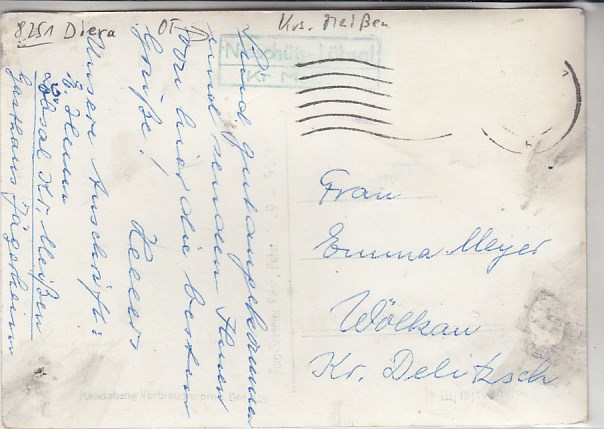 8251 Diera OT Krs. Meißen
Kr. M
Sind gut angekommen
und senden Ihnen
von hier die besten
Grüße! Hellers
Unsere Anschrift:
Löbsal Kr. Meißen
Gasthaus Jägerheim
Frau
Emma Meyer
Wölkau
Kr. Delitzsch
Verbraucherpreis